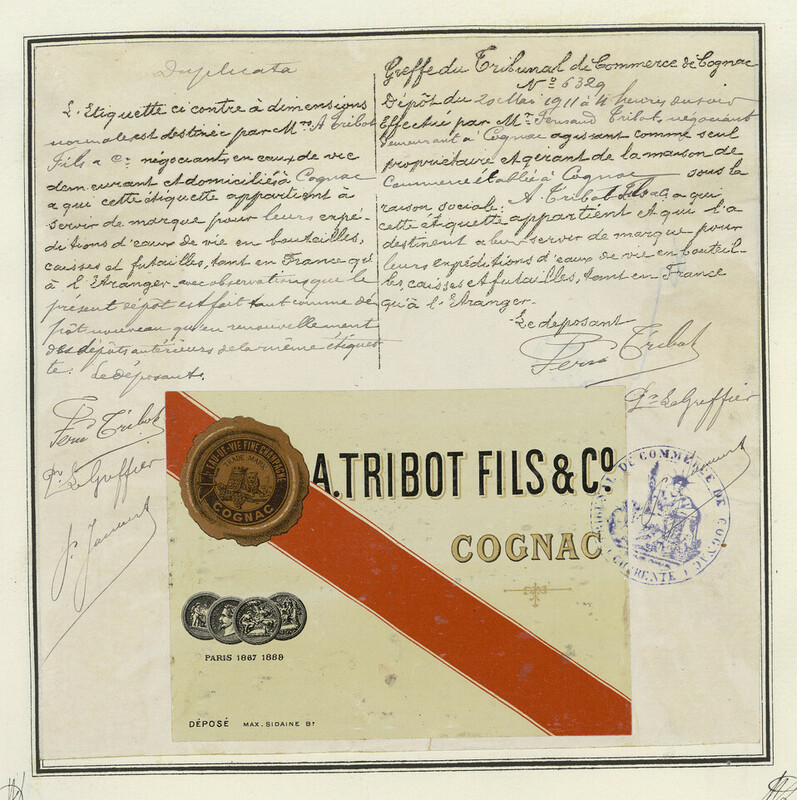 Duplicata
L'Etiquette ci contre à dimensions
normales est destinée par Mrs A Tribot
Fils & Co négociants en eaux de vie
demeurant et domiciliés à Cognac
a qui cette étiquette appartient à
servir de marque pour leurs expé-
ditions d'eaux de vie en bouteilles,
caisses et futailles, tant en France qu'
à l'Etranger avec observations que le
présent dépôt est fait tant comme dé-
pôt nouveau qu'en renouvellement
des dépôts antérieurs de la même étiquet-
te. Le déposant,
Fern Tribot
Pr Le Greffier
Greffe du Tribunal de Commerce de Cognac
No 6329
Dépôt du 20 Mai 1911 à 4 heures du soir
Effectué par Mr Fernand Tribot, négociant
demeurant à Cognac agissant comme seul
propriétaire et gérant de la maison de
Commerce établie à Cognac sous la
raison sociale: A. Tribot Fils & Co a qui
cette étiquette appartient et qui l'a
destinent a leur servir de marque pour
leurs expéditions d'eaux de vie en bouteil-
les, caisses et futailles, tant en France
qu'à l'Etranger.
Le deposant
Fern Tribot
Pr Le Greffier
EAU-DE-VIE FINE CHAMPAGNE
TRADE MARK
COGNAC
A. TRIBOT FILS & Co
COGNAC
PARIS 1867 1889
DÉPOSÉ MAX. SIDAINE Bx
TRIBUNAL DE COMMERCE DE COGNAC
(CHARENTE)